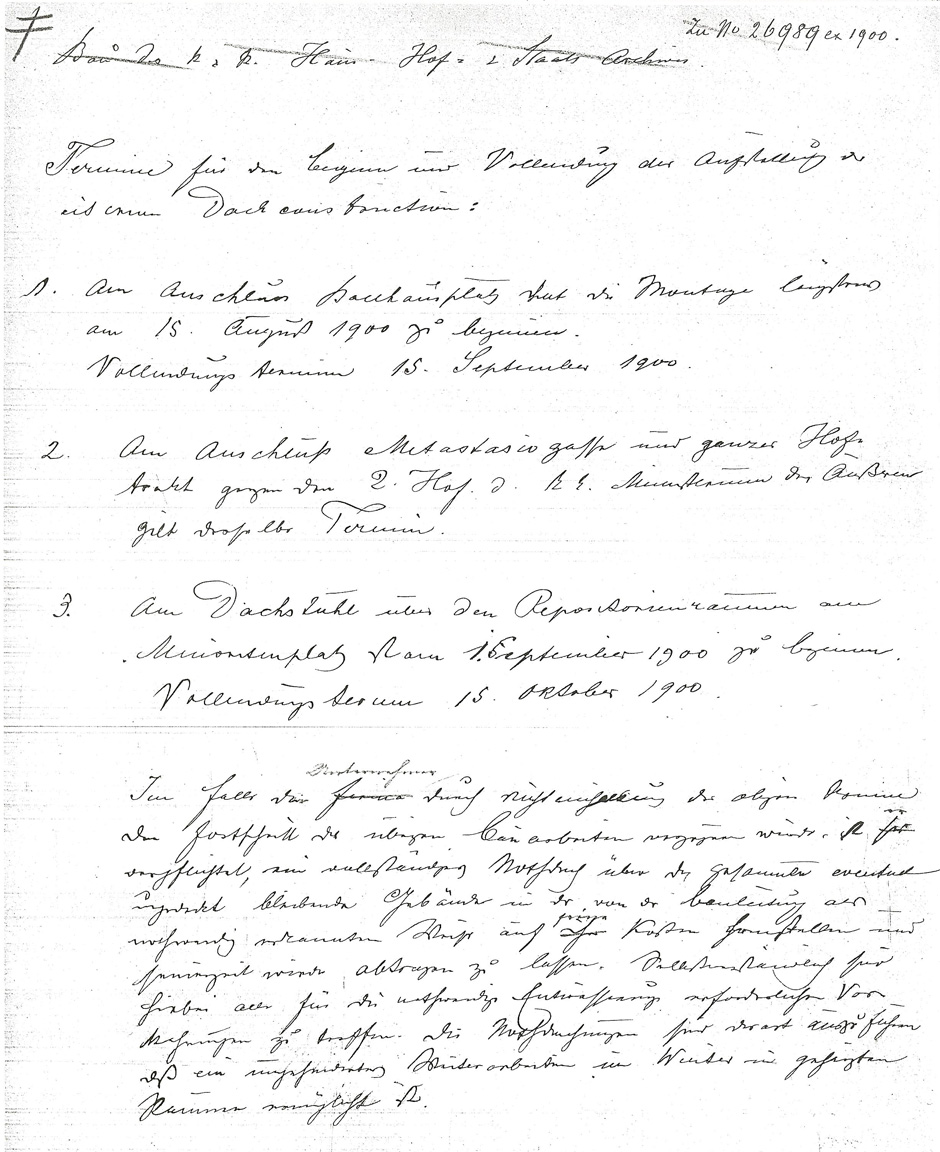 Zu No 26989 ex 1900.
Bau des k. k. Haus- Hof- & Staats Archives.
Termine für den Beginn und Vollendung der Aufstellung der
eisernen Dachconstruction:
1. Am Anschluss Ballhausplatz hat die Montage längstens
am 15. August 1900 zu beginnen.
Vollendungstermin 15. September 1900.
2. Am Anschluß Metastasiogasse und ganzer Hof=
trakt gegen den 2. Hof d. k. k. Ministerium des Äußeren
gilt derselbe Termin.
3. Am Dachstuhl über den Repositorienräumen am
Minoritenplatz ist am 1. September 1900 zu beginnen.
Vollendungstermin 15. Oktober 1900.
Unternehmer
Im Falle der Firma durch Nichteinhaltung der obigen Termine
den Fortschritt der übrigen Bauarbeiten verzögern würde, ist er
verpflichtet, ein vollständiges Nothdach über das gesammte eventuell
ungedeckt bleibende Gebäude in der von der Bauleitung als
seine
nothwendig erkannten Weise auf ihre Kosten herstellen und
seinerzeit wieder abtragen zu lassen. Selbstverständlich sind
hiebei alle für die nothwendige Entwässerung erforderlichen Vor=
kehrungen zu treffen. Die Nothdachungen sind derart auszuführen
daß ein ungehindertes Weiterarbeiten im Winter in geheizten
Räumen ermöglicht ist.